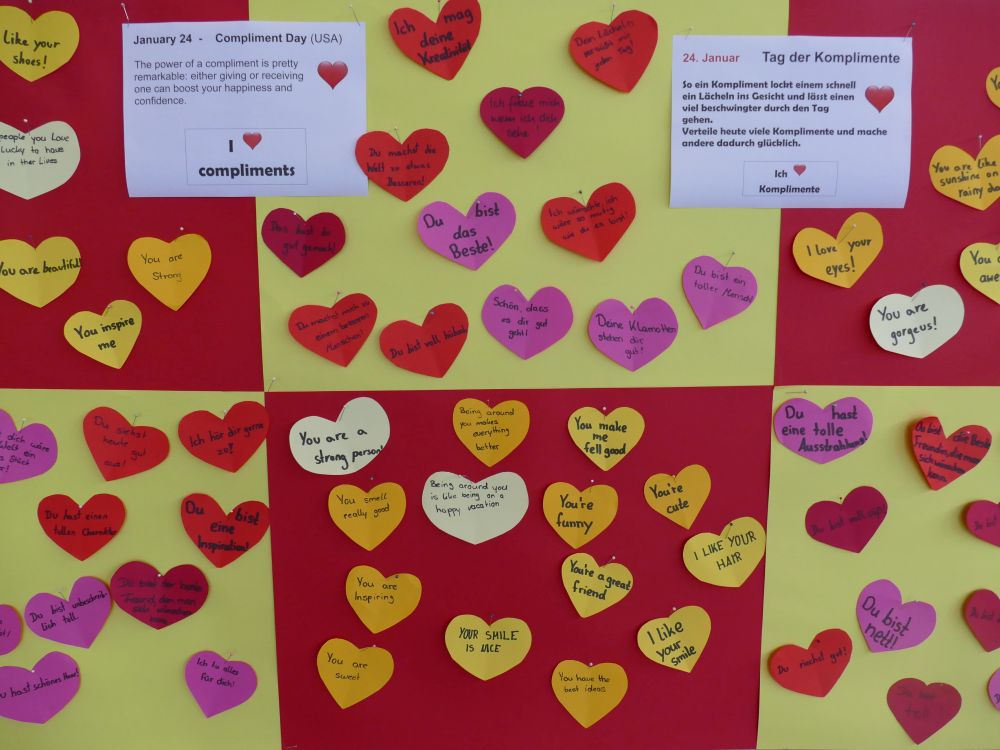 Like your
shoes!
January 24 - Compliment Day (USA)
The power of a compliment is pretty
remarkable: either giving or receiving
one can boost your happiness and
confidence.
I
compliments
people you Love
Lucky to have
in ther Lives
You are beautiful!
You are
Strong
You inspire
me
Ich mag
deine
Kreativität
Dein Lächeln
versüßt mir
jeden Tag!
Ich freue mich
wenn ich dich
sehe!
Du machst die
Welt zu etwas
Besseren!
Du bist
das
Beste!
Ich wünschte, ich
wäre so mutig
wie du es bist!
Das hast du
gut gemacht!
Du bist ein
toller Mensch!
Du machst mich zu
einem besseren
Menschen!
Du bist voll hübsch
Schön, dass
es dir gut
geht!
Deine Klamotten
stehen dir
gut!
24. Januar Tag der Komplimente
So ein Kompliment lockt einem schnell
ein Lächeln ins Gesicht und lässt einen
viel beschwingter durch den Tag
gehen.
Verteile heute viele Komplimente und mache
andere dadurch glücklich.
Ich
Komplimente
You are like
sunshine on
rainy da
I love your
eyes!
You a
awe
You are
gorgeus!
dich wäre
Welt ein
Stück
Du siehst
heute
gut
aus!
Ich hör dir gerne
zu!
Du hast einen
tollen Charakter
Du bist
eine
Inspiration!
Du bist unbeschreib-
lich toll.
Du bist der beste
Freund, den man
sich wünschen
kann.
Du hast schönes Haar!
Ich tu alles
für dich!
You are a
strong person!
Being around
you makes
everything
better
You make
me
fell good
You smell
really good
Being around you
is like being on a
happy vacation
You're
funny
You're
cute
I LIKE YOUR
HAIR
You are
Inspiring
You're a great
friend
YOUR SMILE
IS NICE
I like
your
smile
You are
sweet
You have the
best ideas
Du hast
eine tolle
Ausstrahlung!
Du bist die Beste
Freundin, die man
sich wünschen
kann.
Du bist voll süß!
Du bist
nett!
Du riechst gut!
Du bist
toll!